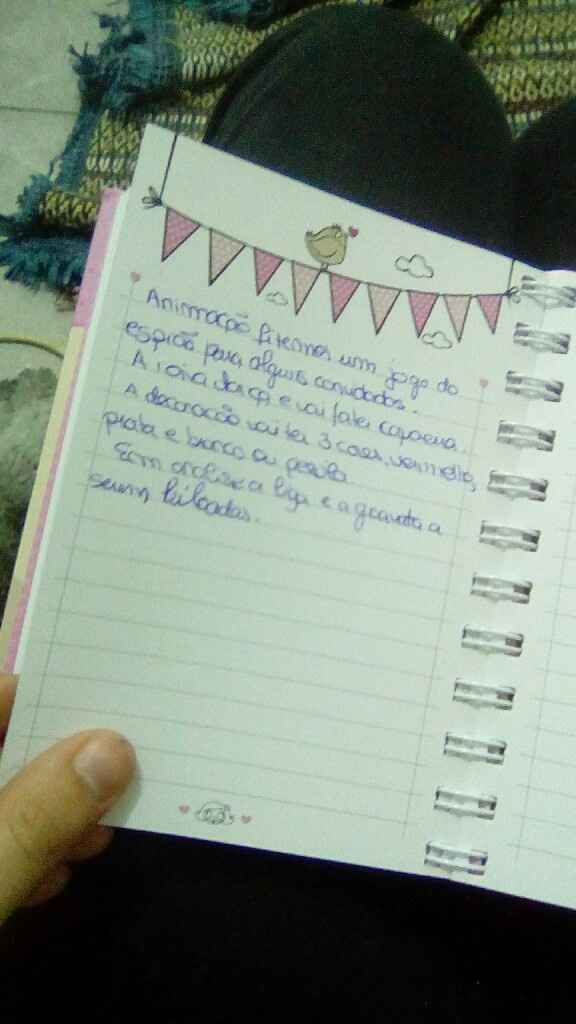 Animação fizemos um jogo do
espião para alguns convidados.
A noiva dança e vai fazer capoeira.
A decoração vai ter 3 cores, vermelho,
prata e branco ou perola.
Em análise a liga e a gravata a
serem leiloadas.